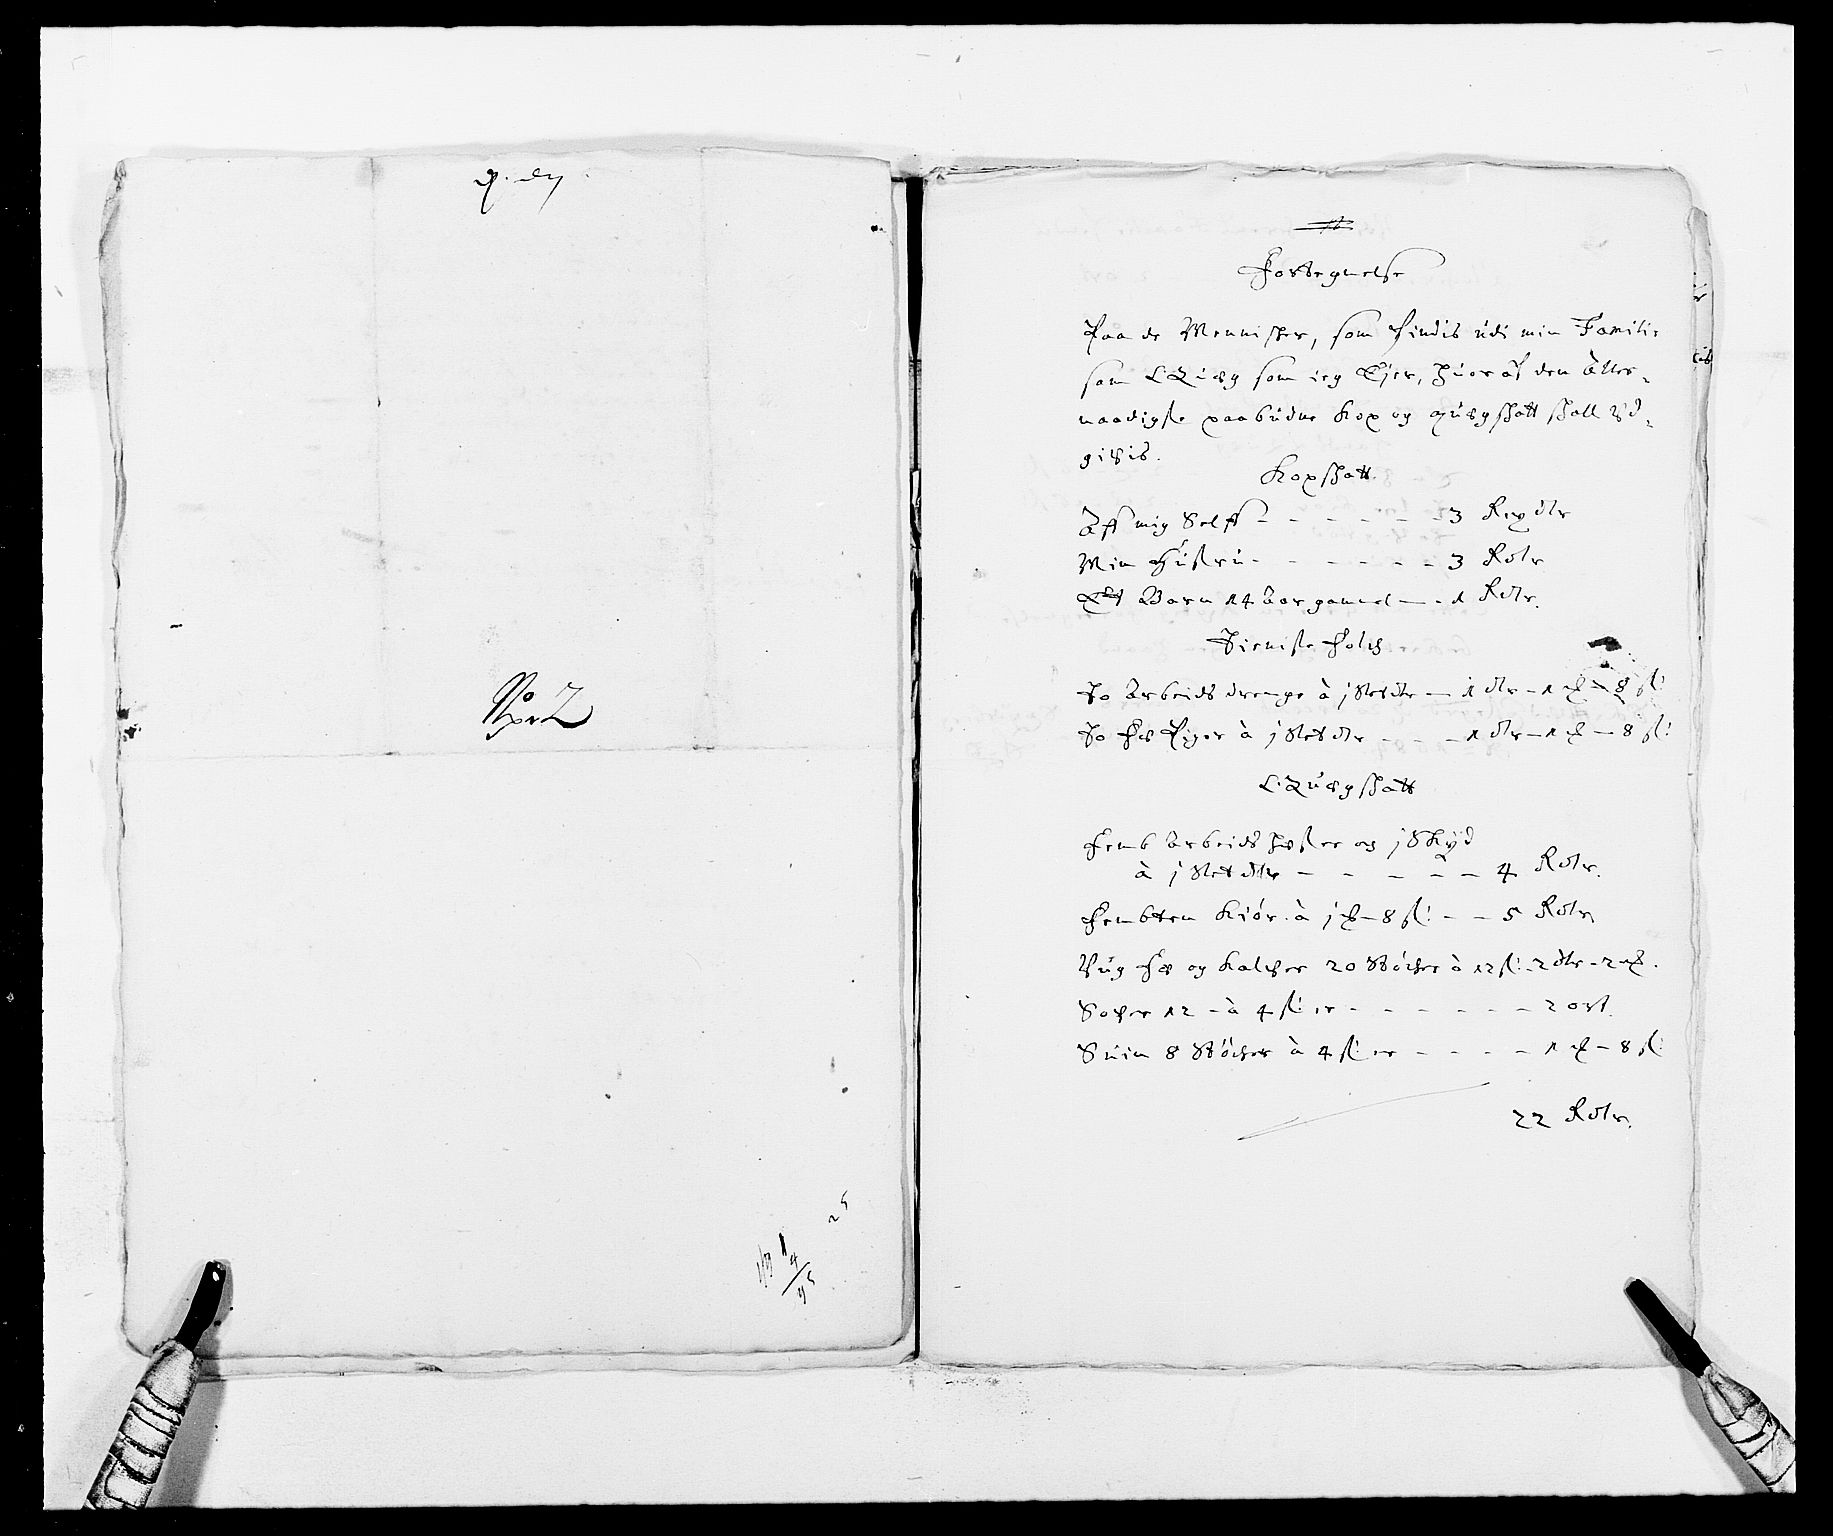 No 2
25
Fortegnelse
Paa de Mennisker, som findis udi min Familie
som Qvæg som ieg Ejer, huor af den Aller-
naadigste paabudne Kop og quægskatt skall Ud-
givis.
Kopskatt.
Aff mig Self - - - - - - 3 Rixdlr
Min Hustru - - - - - - 3 Rdlr
Et Barn 14 Aar gammel - - 1 Rdlr.
Tieniste folch
To Arbeids drenge à j Slet dlr - 1 dlr - 1 ℳ - 8 ß:
To fæ Piger à j Slet dlr - - - 1 dlr - 1 ℳ - 8 ß:
Qvægskatt
Femb Arbeids hæster og j
à j Slet dlr - - - - - 4 Rdlr.
Fembten Kiør à j ℳ - 8 ß: - - 5 Rdlr
Ung fæ og Kalfver 20 Støcher à 12 ß: - 2 dlr - 2 ℳ.
Sofver 12 - à 4 ß: er - - - - - - 2 ort.
Suin 8 Støcher à 4 ß: er - - - - 1 ℳ - 8 ß
22 Rdlr.